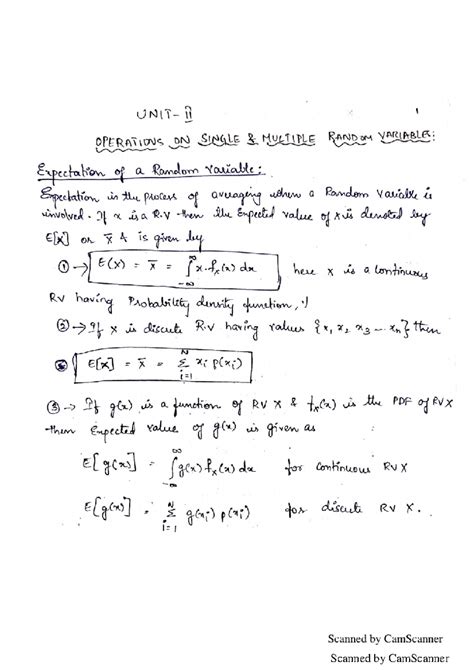 UNIT-II
1
OPERATIONS ON SINGLE & MULTIPLE RANDOM VARIABLES:
Expectation of a Random Variable:
Expectation is the process of averaging when a Random Variable is
involved. If x is a R.V then the Expected value of x is denoted by
E[X] or x̄ & is given by
① → E(X) = x̄ = ∫_{-∞}^{∞} x.f_x(x) dx here x is a continuous
RV having Probability density function,
② → If x is discrete R.V having values {x₁ x₂ x₃ --- xₙ} then
E[X] = x̄ = Σ_{i=1}^{N} x_i p(x_i)
③ → If g(x) is a function of RV X & f_x(x) is the PDF of RV X
then Expected value of g(x) is given as
E[g(x)] = ∫_{-∞}^{∞} g(x) f_x(x) dx for continuous RV X
E[g(x)] = Σ_{i=1}^{N} g(x_i) p(x_i) for discrete RV X.
Scanned by CamScanner
Scanned by CamScanner